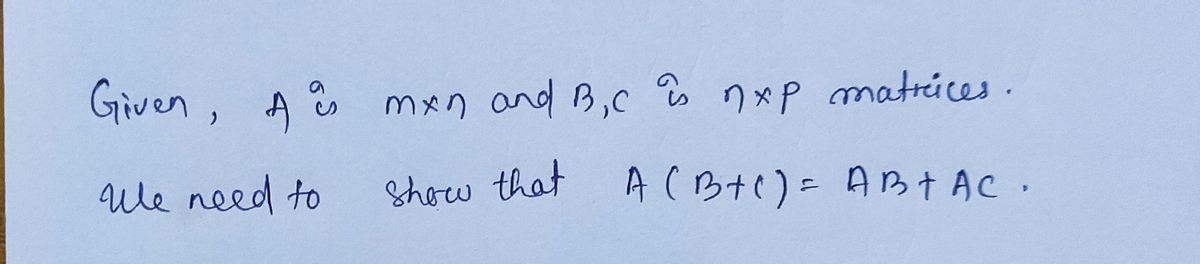 Given, A is m×n and B,C is n×p matrices.
We need to show that A(B+C) = AB + AC.